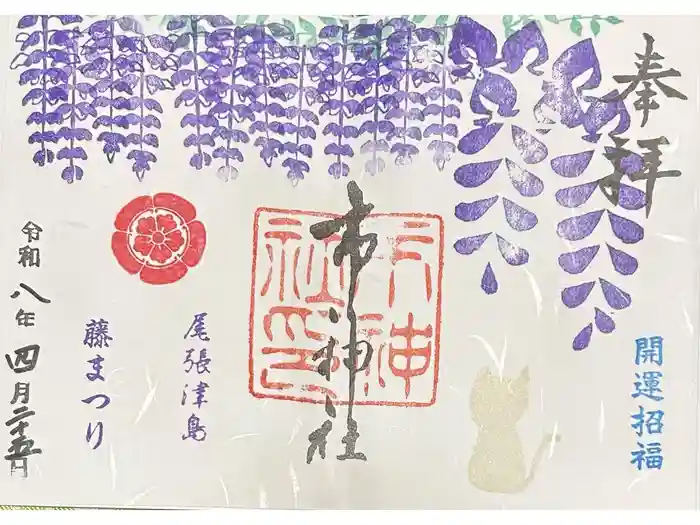 奉拝
開運招福
市神社
市神社印
尾張津島
藤まつり
令和八年四月二十五日